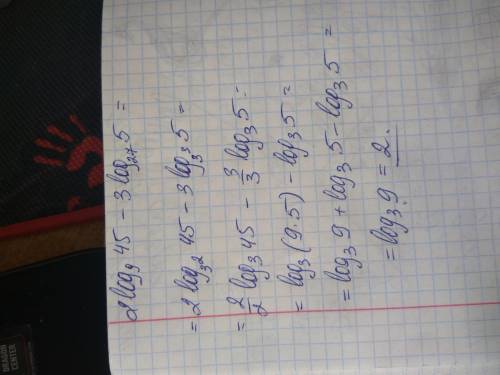 2 log₉ 45 − 3 log₂₇ 5 =
= 2 log₃² 45 − 3 log₃³ 5 =
= 2/2 log₃ 45 − 3/3 log₃ 5 =
= log₃ (9·5) − log₃ 5 =
= log₃ 9 + log₃ 5 − log₃ 5 =
= log₃ 9 = 2.
DRAGON
CENTER